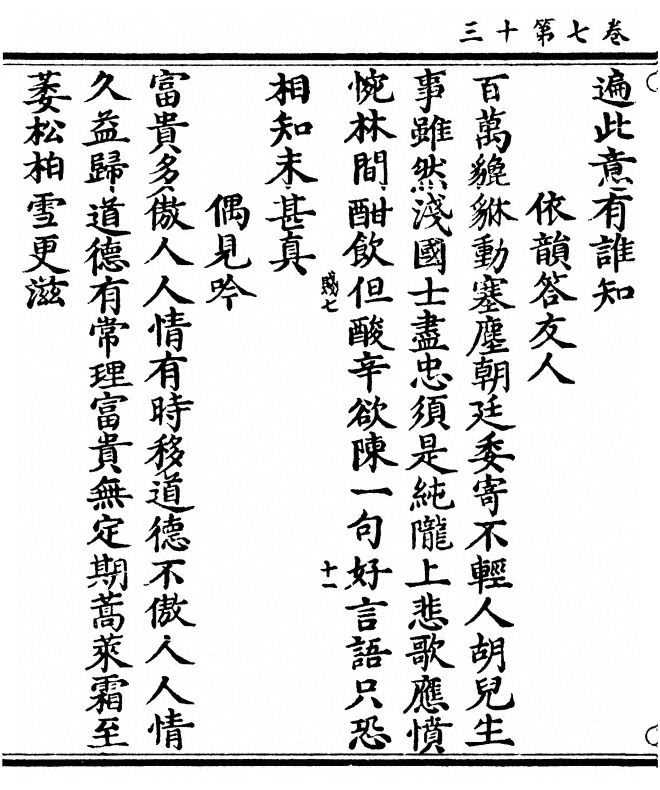 三十第七卷
遍此意有誰知
依韻答友人
百萬貔貅動塞塵朝廷委寄不輕人胡兒生
事雖然淺國士盡忠須是純隴上悲歌應憤
惋林間酣飲但酸辛欲陳一句好言語只恐
相知未甚真
賤七
十一
偶見吟
富貴多傲人人情有時移道德不傲人人情
久益歸道德有常理富貴無定期蒿萊霜至
萎松柏雪更滋